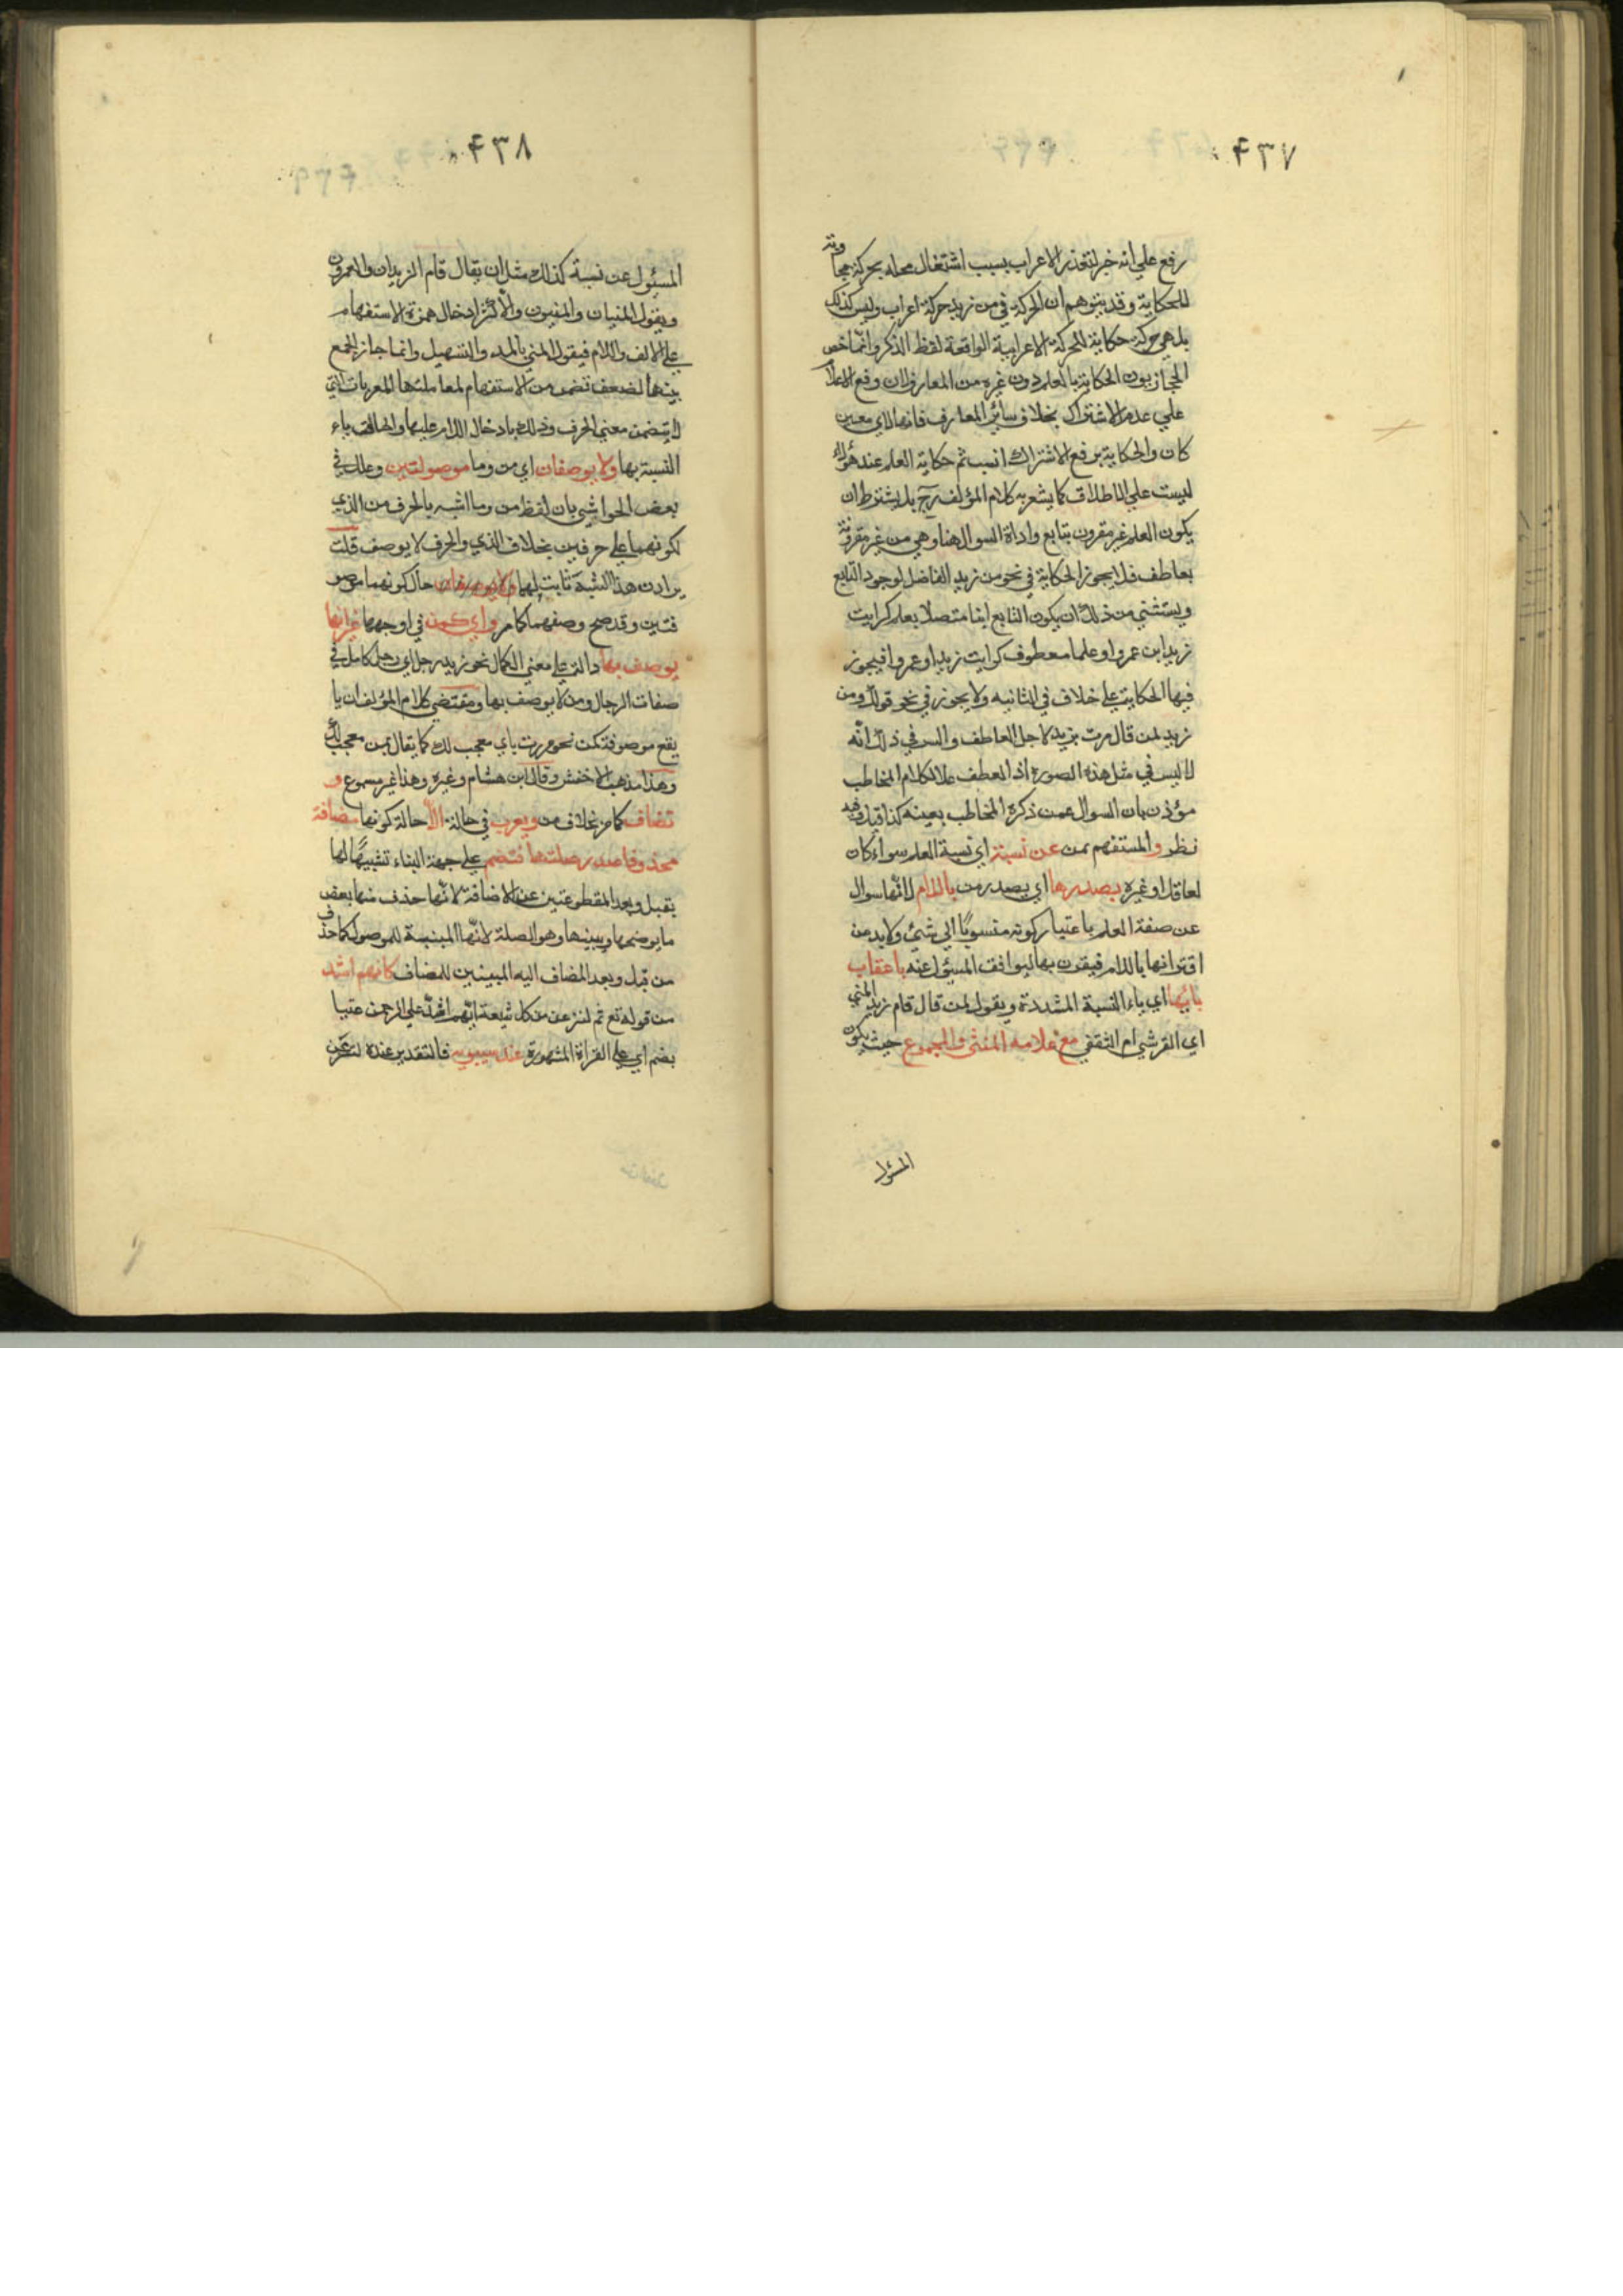 ۴۳۷
رفع علي انه خبر لتعذر الاعراب بسبب اشتغال محله بحركة مجاوته
للحكاية وقد يتوهم ان الحركة في من زيد حركة اعراب وليس كذلك
بل هي حركة حكاية للحركة الاعرابية الواقعة لفظ الذكر وانما خص
الحجازيون الحكاية بالعلم دون غيره من المعارف لان وقع الاعلام
علي عدم الاشتراك بخلاف سائر المعارف فانها لاي معين
كان والحكاية برفع الاشتراك انسب ثم حكاية العلم عند هؤلاء
ليست علي الاطلاق كما يشعر به كلام المؤلف رح بل يشترط ان
يكون العلم غير مقرون بتابع واداة السوال هنا وهي من غير مقرونة
بعاطف فلا يجوز الحكاية في نحو من زيد الفاضل لوجود التابع
ويستثني من ذلك ان يكون التابع ابنا متصلا بعلم كرايت
زيدا ابن عمرو او علما معطوف كرايت زيدا وعمروا فيجوز
فيها الحكاية علي خلاف في الثانيه ولا يجوز في نحو قولك ومن
زيد لمن قال مرت بزيد لاجل العاطف والسر في ذلك انه
لا لبس في مثل هذه الصورة اذ العطف علا لكلام المخاطب
مؤذن بان السوال عمن ذكره المخاطب بعينه كذا قيل وفيه
نظر والمستفهم بمن عن نسبة اي نسبة العلم سواء كان
لعاقل او غيره بصدرها اي بصدر من باللام لانها سوال
عن صفة العلم باعتبار كونه منسوبا الي شئ ولابد من
اقترانها باللام فيقرن بها ليوافق المسئول عنه باعقاب
يائها اي ياء النسبة المشددة ويقول لمن قال قام زيد المني
اي القرشي ام الثقفي مع علامه المثنى والمجموع حيث يكون
المسئول
۴۳۸
المسئول عن نسبة كذلك مثل ان يقال قام الزيدان والعمرون
ويقول المنيان والمنيون والاكثر ادخال همزة الاستفهام
علي الالف واللام فيقول المني بالمد والتسهيل وانما جاز الجمع
بينهما لضعف تضمن من الاستفهام لمعاملتها المعربات التي
لا يتضمن معني الحرف وذلك بادخال اللام عليها والحاق ياء
النسبة بها ولا يوصفان اي من وما موصولتين وعلل في
بعض الحواشي بان لفظ من وما اشبه بالحرف من الذي
لكونهما علي حرفين بخلاف الذي والحرف لا يوصف قلت
يرادن هذا الشبه ثابت لهما ولا يوصفان حال كونهما موصو
فتين وقد صح وصفهما كما مر واي كمن في اوجهها غير انها
يوصف بها دالة علي معني الكمال نحو زيد رجل اي رجل كامل في
صفات الرجال ومن لا يوصف بها ومقتضي كلام المؤلف ان يا
يقع موصوفة كمن نحو مررت باي معجب لك كما يقال بمن معجب لك
وهذا مذهب الاخفش وقال ابن هشام وغيره وهذا غير مسموع و
تضاف كما مر بخلاف من ويعرب في حالة الا حالة كونها مضافة
محذوفا صدر صلتها فتضم علي جهة البناء تشبيها لها
بقبل وبعد المقطوعتين عن الاضافة لانها حذف منها بعض
ما يوضحها ويبينها وهو الصلة لانها المبنية للموصول كما حذف
من قبل وبعد المضاف اليه المبينين للمضاف كايهم اشد
من قوله تع ثم لننزعن من كل شيعة ايهم اشد علي الرحمن عتيا
بضم اي علي القراة المشهورة عند سيبويه فالتقدير عنده لننزعن